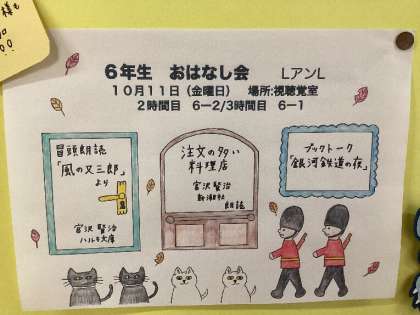 6年生 おはなし会 LアンL
10月11日(金曜日) 場所:視聴覚室
2時間目 6-2/3時間目 6-1
冒頭朗読
「風の又三郎」
より
宮沢 賢治
ハルキ文庫
注文の多い
料理店
宮沢 賢治
新潮社
朗読
ブックトーク
「銀河鉄道の夜」
様も